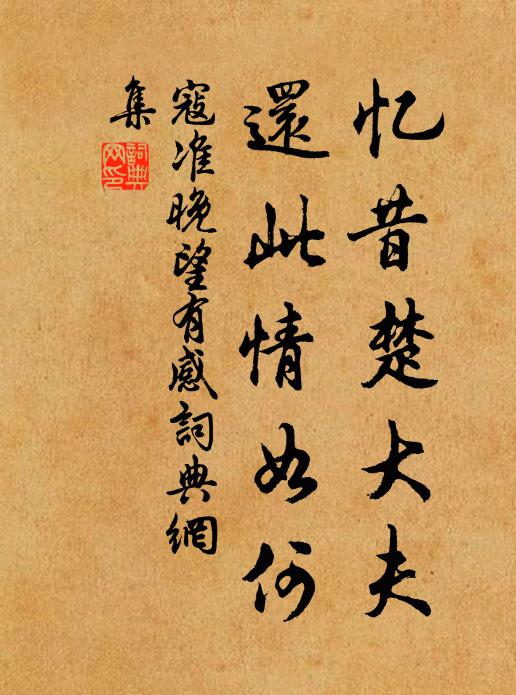 忆昔楚大夫
還此情如何
寇准晚望有感詞典網
集
詞典网印